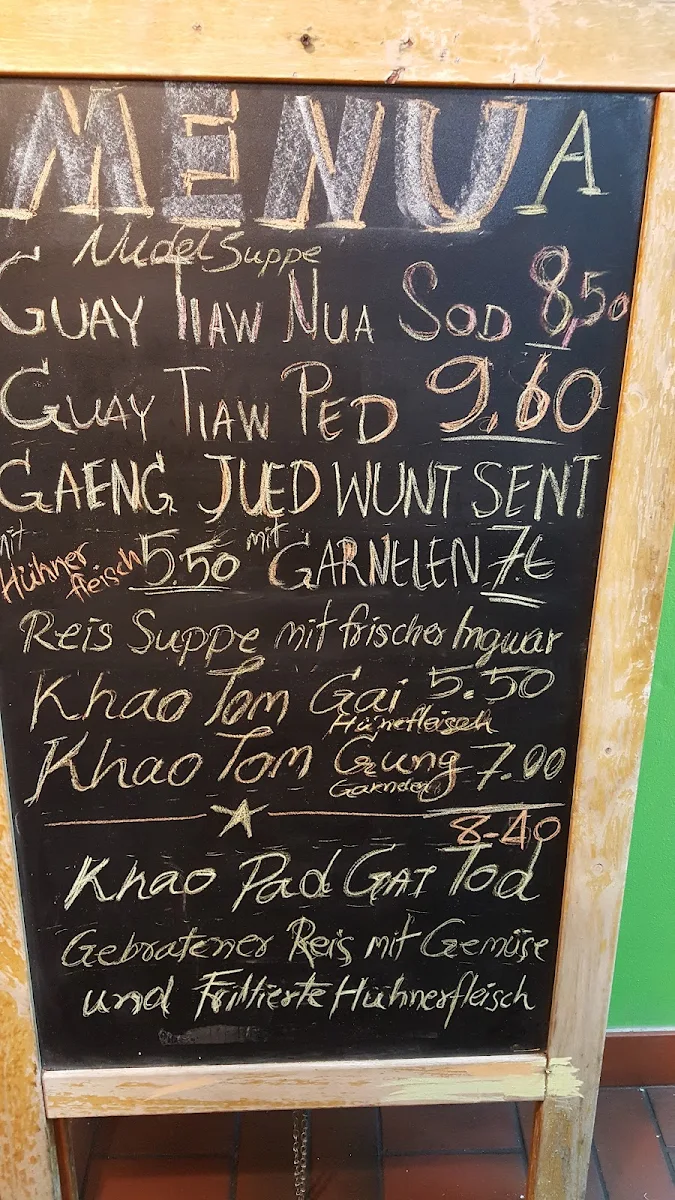 MENU A
Nudel Suppe
GUAY TIAW NUA SOD 8,50
GUAY TIAW PED 9.60
GAENG JUED WUNT SENT
mit Hühner fleisch 5.50 mit GARNELEN 7€
Reis Suppe mit frischer Ingwar
Khao Tom Gai 5.50
Hünefleisch
Khao Tom Gung 7.00
8-40
Khao Pad GAI Tod
Gebratener Reis mit Gemüse
und Frittierte Huhnerfleisch